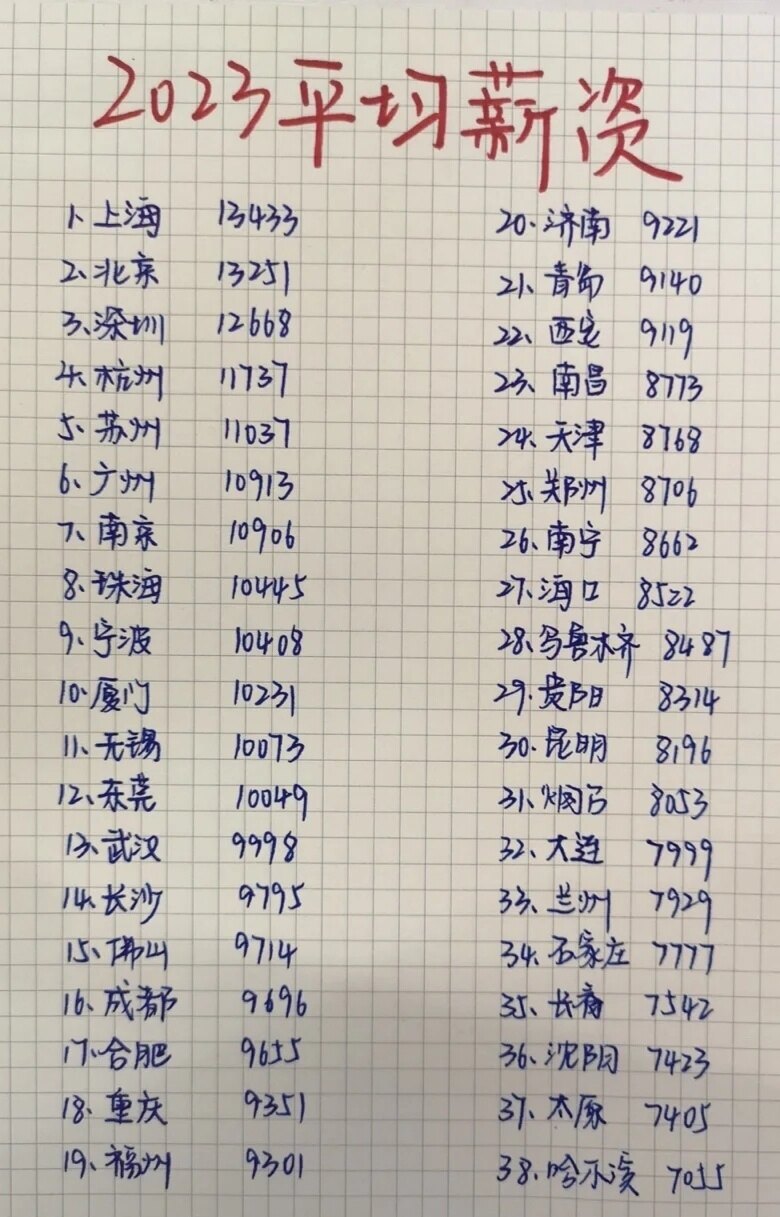 2023平均薪资
1、上海 13433
2、北京 13251
3、深圳 12668
4、杭州 11737
5、苏州 11037
6、广州 10913
7、南京 10906
8、珠海 10445
9、宁波 10408
10、厦门 10231
11、无锡 10073
12、东莞 10049
13、武汉 9998
14、长沙 9795
15、佛山 9714
16、成都 9696
17、合肥 9655
18、重庆 9351
19、福州 9301
20、济南 9221
21、青岛 9140
22、西安 9119
23、南昌 8773
24、天津 8768
25、郑州 8706
26、南宁 8662
27、海口 8522
28、乌鲁木齐 8487
29、贵阳 8314
30、昆明 8196
31、烟台 8053
32、大连 7999
33、兰州 7929
34、石家庄 7777
35、长春 7542
36、沈阳 7423
37、太原 7405
38、哈尔滨 7055